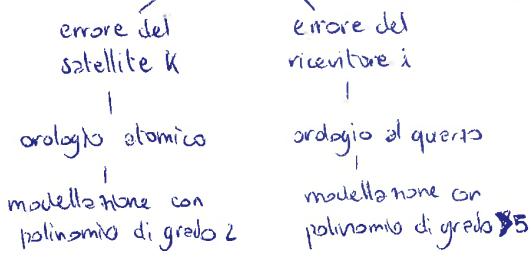 errore del
satellite K
orologio atomico
modellazione con
polinomio di grado 2
errore del
ricevitore i
orologio al quarzo
modellazione con
polinomio di grado 5